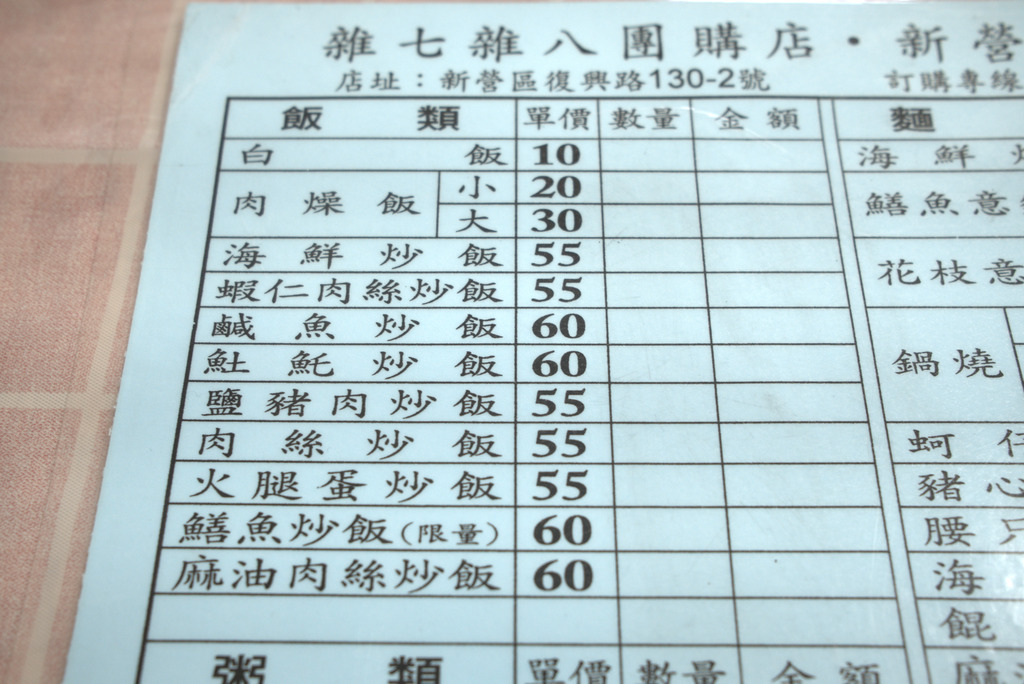 雜七雜八團購店・新營
店址：新營區復興路130-2號 訂購專線
飯類 單價 數量 金額 麵
白飯 10 海鮮
肉燥飯 小 20 鱔魚意
大 30
海鮮炒飯 55 花枝意
蝦仁肉絲炒飯 55
鹹魚炒飯 60
魠魠炒飯 60 鍋燒
鹽豬肉炒飯 55
肉絲炒飯 55 蚵仔
火腿蛋炒飯 55 豬心
鱔魚炒飯(限量) 60 腰只
麻油肉絲炒飯 60 海
餛
粥類 單價 數量 金額 麻